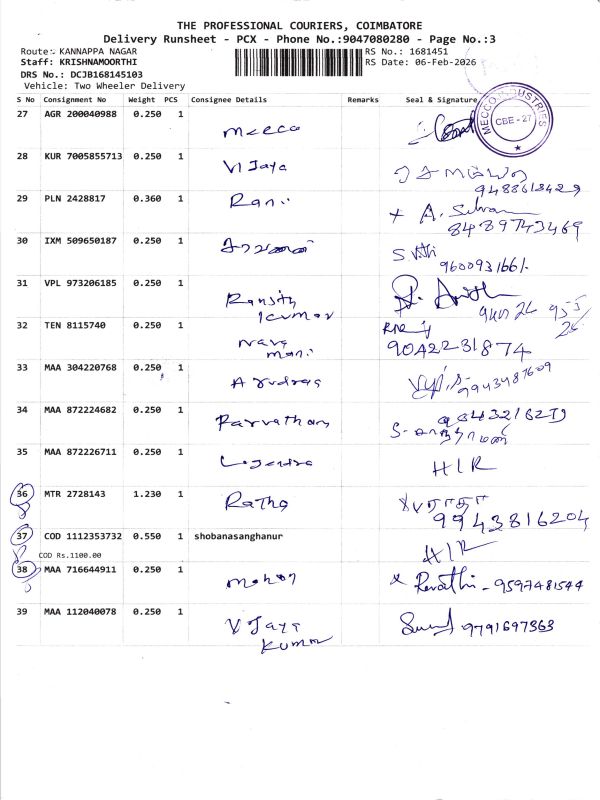 THE PROFESSIONAL COURIERS, COIMBATORE
Delivery Runsheet - PCX - Phone No.:9047080280 - Page No.:3
Route: KANNAPPA NAGAR RS No.: 1681451
Staff: KRISHNAMOORTHI RS Date: 06-Feb-2026
DRS No.: DCJB168145103
Vehicle: Two Wheeler Delivery
S No Consignment No Weight PCS Consignee Details Remarks Seal & Signature
27 AGR 200040988 0.250 1 Mecco
MECCO INDUSTRIES
CBE - 27
28 KUR 7005855713 0.250 1 Vijaya
9488618429
29 PLN 2428817 0.360 1 Rani
x A. Selvam
8489743469
30 IXM 509650187 0.250 1
9600931661.
31 VPL 973206185 0.250 1 Ransith
Kumar
32 TEN 8115740 0.250 1 Nava
mani
9042231874
33 MAA 304220768 0.250 1 Arudraa
9943487609
34 MAA 872224682 0.250 1 Parvatham
35 MAA 872226711 0.250 1
HIR
36 MTR 2728143 1.230 1 Ratha
x யராதா
9943816204
37 COD 1112353732 0.550 1 shobanasanghanur
COD Rs.1100.00
HIR
38 MAA 716644911 0.250 1 Mohan
x Revathi - 9597481544
39 MAA 112040078 0.250 1 Vijaya
Kumar
9791697363